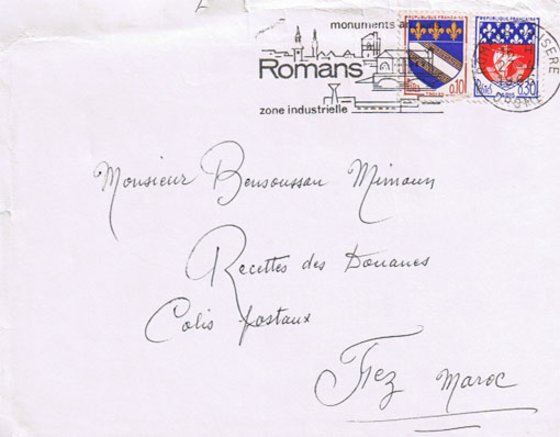 monuments a
Romans
zone industrielle
REPUBLIQUE FRANÇAISE
TROYES
0,10
REPUBLIQUE FRANÇAISE
PARIS
0,30
ISERE
Monsieur Bensoussan Mimoun
Recettes des Douanes
Colis postaux
Fez Maroc